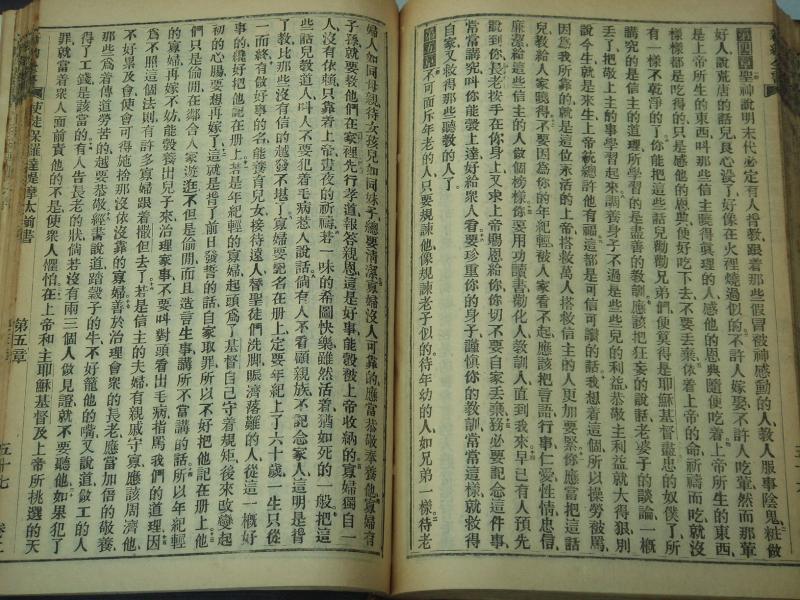 第四章聖神說明末代必定有人背敎跟着那些假冒被神感動的人敎人服事陰鬼粧做
好人說荒唐的話兒良心沒了好像在火裡燒過似的不許人嫁娶不許人吃葷然而那葷
是上帝所生的東西叫那些信主曉得眞理的人感他的恩典隨便吃着上帝所生的東西
樣樣都是吃得的只是感他的恩典便好吃下去不要丟棄依着上帝的命祈禱而吃就沒
有一樣不乾淨的了你能把這些話兒勸勸兄弟們便算得是耶穌基督盡忠的奴僕了所
講究的是信主的道理所學習的是盡善的敎訓應該把狂妄的說話老婆子的談論一概
丟了把敬上主的事學習起來調養身子不過是些些兒的利益恭敬主利益就大得狠別
說今生就是來生上帝統總許他有福這都是可信可讀的話我想着這個所以操勞被罵
因爲我所靠的就是這位永活的上帝搭救萬人搭救信主的人更加要緊你應當把這話
兒敎給人家聽得不要因爲你的年紀輕被人家看不起應該把言語行事仁愛性情忠信
廉潔給這些信主的人做個榜樣你要用功讀書勸化人敎訓人直到我來早已有人預先
說到你長老按手在你身上又求上帝賜恩給你你切不要自家丟棄務必要記念這件事
常常講究叫你能彀上達好給衆人看要珍重你的身子謹愼你的敎訓常常這樣就救得
自家又救得那些聽敎的人了
第五章不可面斥年老的人只要規諫他像規諫老子似的待年幼的人如兄弟一樣待老
婦人如同母親待女孩兒如同妹子總要清潔寡婦沒人可靠的應當恭敬奉養他寡婦有
子孫就要敎他們在家裡先行孝道報答親恩這是好事能彀被上帝收納的寡婦獨自一
人沒有依賴只靠着上帝晝夜的祈禱若一味的希圖快樂雖然活着猶如死的一般把這
些話兒敎道人叫人不要犯着毛病惹人說話倘有人不看顧親族不記念家人這明是背
了敎比那些沒有信的越發不堪了寡婦要記名在册上定要年紀上了六十歲一生只從
一而終有做好事的名能養育兒女接待遠人替聖徒們洗脚賑濟落難的人從這一概好
事的纔好把他記在册上若是年紀輕的寡婦起頭爲了基督自己守着規矩後來改變起
初的心腸要想再嫁了這就是背了前日發誓的話自家取罪所以不好把他記在册上他
們只是偷閒在鄰舍人家遊逛不但是偷閒而且造言生事講所不當講的話所以年紀輕
的寡婦再嫁不妨能彀養出兒子來治理家事不要叫對頭看出毛病指罵我們的道理因
爲不照這個法則有許多寡婦跟着撒但去了若是信主的夫婦有親戚守寡應該周濟他
不好累及會使會可得施捨那沒依沒靠的寡婦善於治理會衆的長老應當加倍的敬養
那些爲着傳道勞苦的越要恭敬經書說道踏穀子的牛不好籠他的嘴又說道做工的人
得了工錢是該當的有人告長老的狀倘若沒有兩三個人做見證就不要聽他如果犯了
罪就當着衆人面前責他的不是使衆人懼怕在上帝和主耶穌基督及上帝所挑選的天
使徒保羅達提摩太前書
第五章
五十七